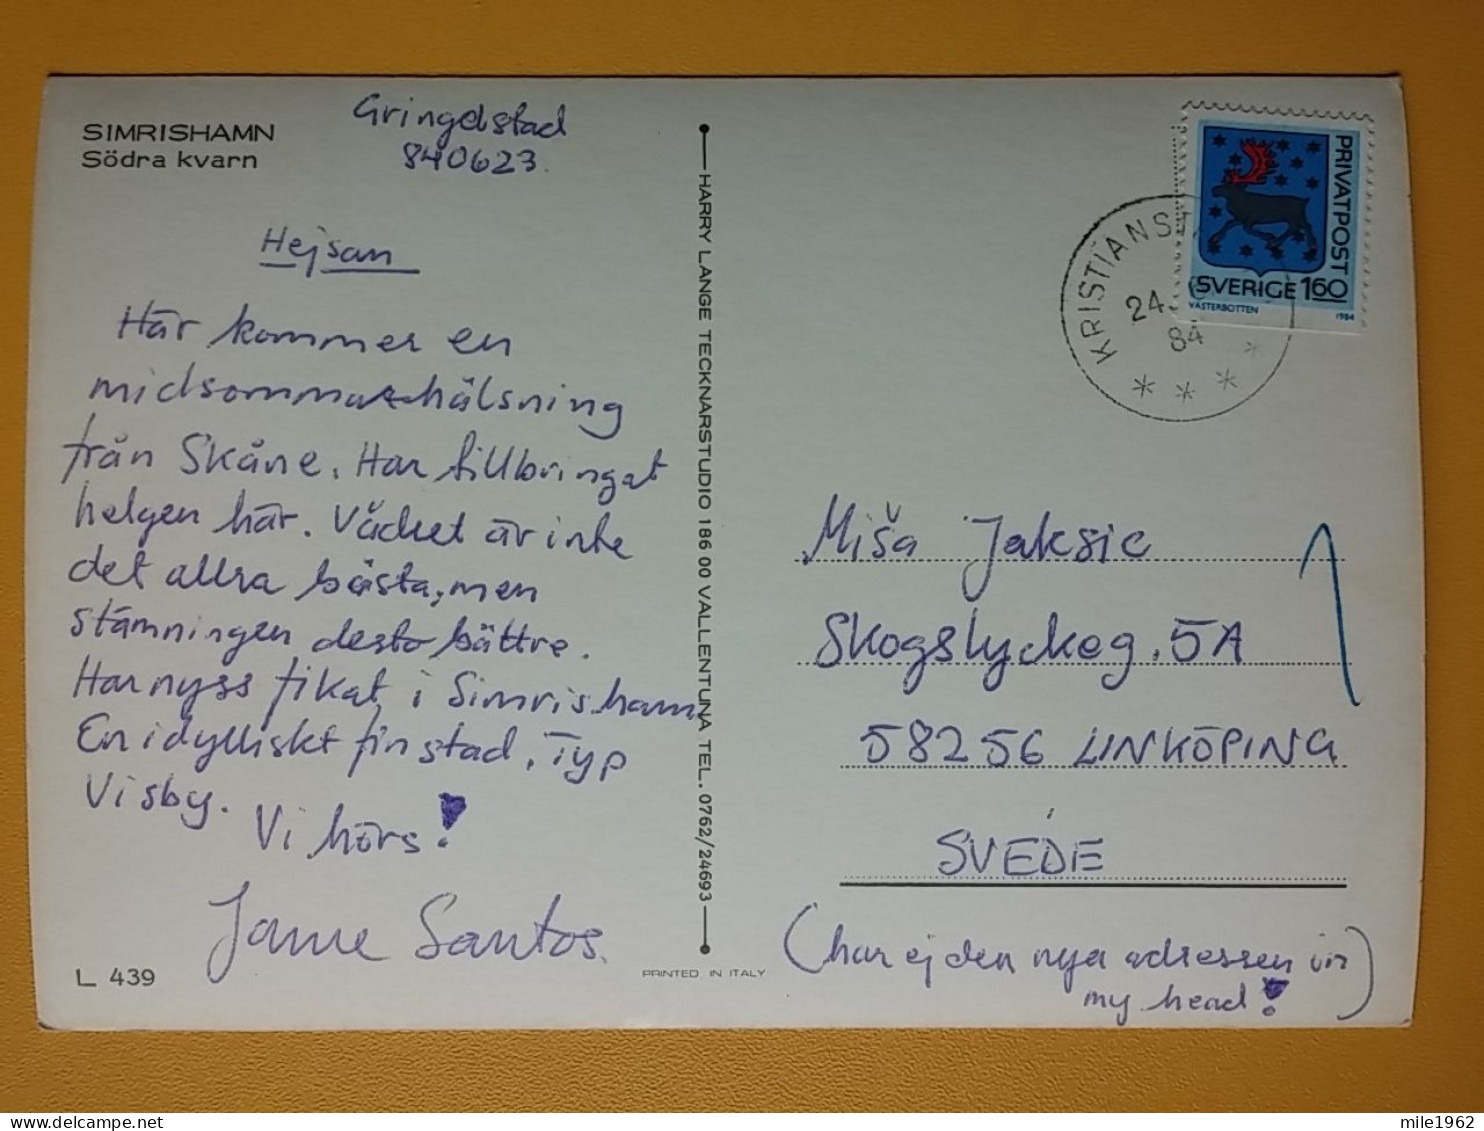 SIMRISHAMN
Södra kvarn
Gringelstad
840623.
Hejsan
Här kommer en
midsommarhälsning
från Skåne. Har tillbringat
helgen här. Vädret är inte
det allra bästa, men
stämningen desto bättre.
Har nyss fikat i Simrishamn
En idylliskt fin stad, Typ
Visby. Vi hörs!
Jame Santos.
L 439
HARRY LANGE TECKNARSTUDIO 186 00 VALLENTUNA TEL. 0762/24693
PRINTED IN ITALY
PRIVATPOST
SVERIGE 160
VÄSTERBOTTEN 1984
KRISTIANST
24.
84
Miša Jaksic
Skogslyckeg. 5A
58256 LINKÖPING
SVEDE
1
(har ej den nya adressen in
my head!)
mile1962